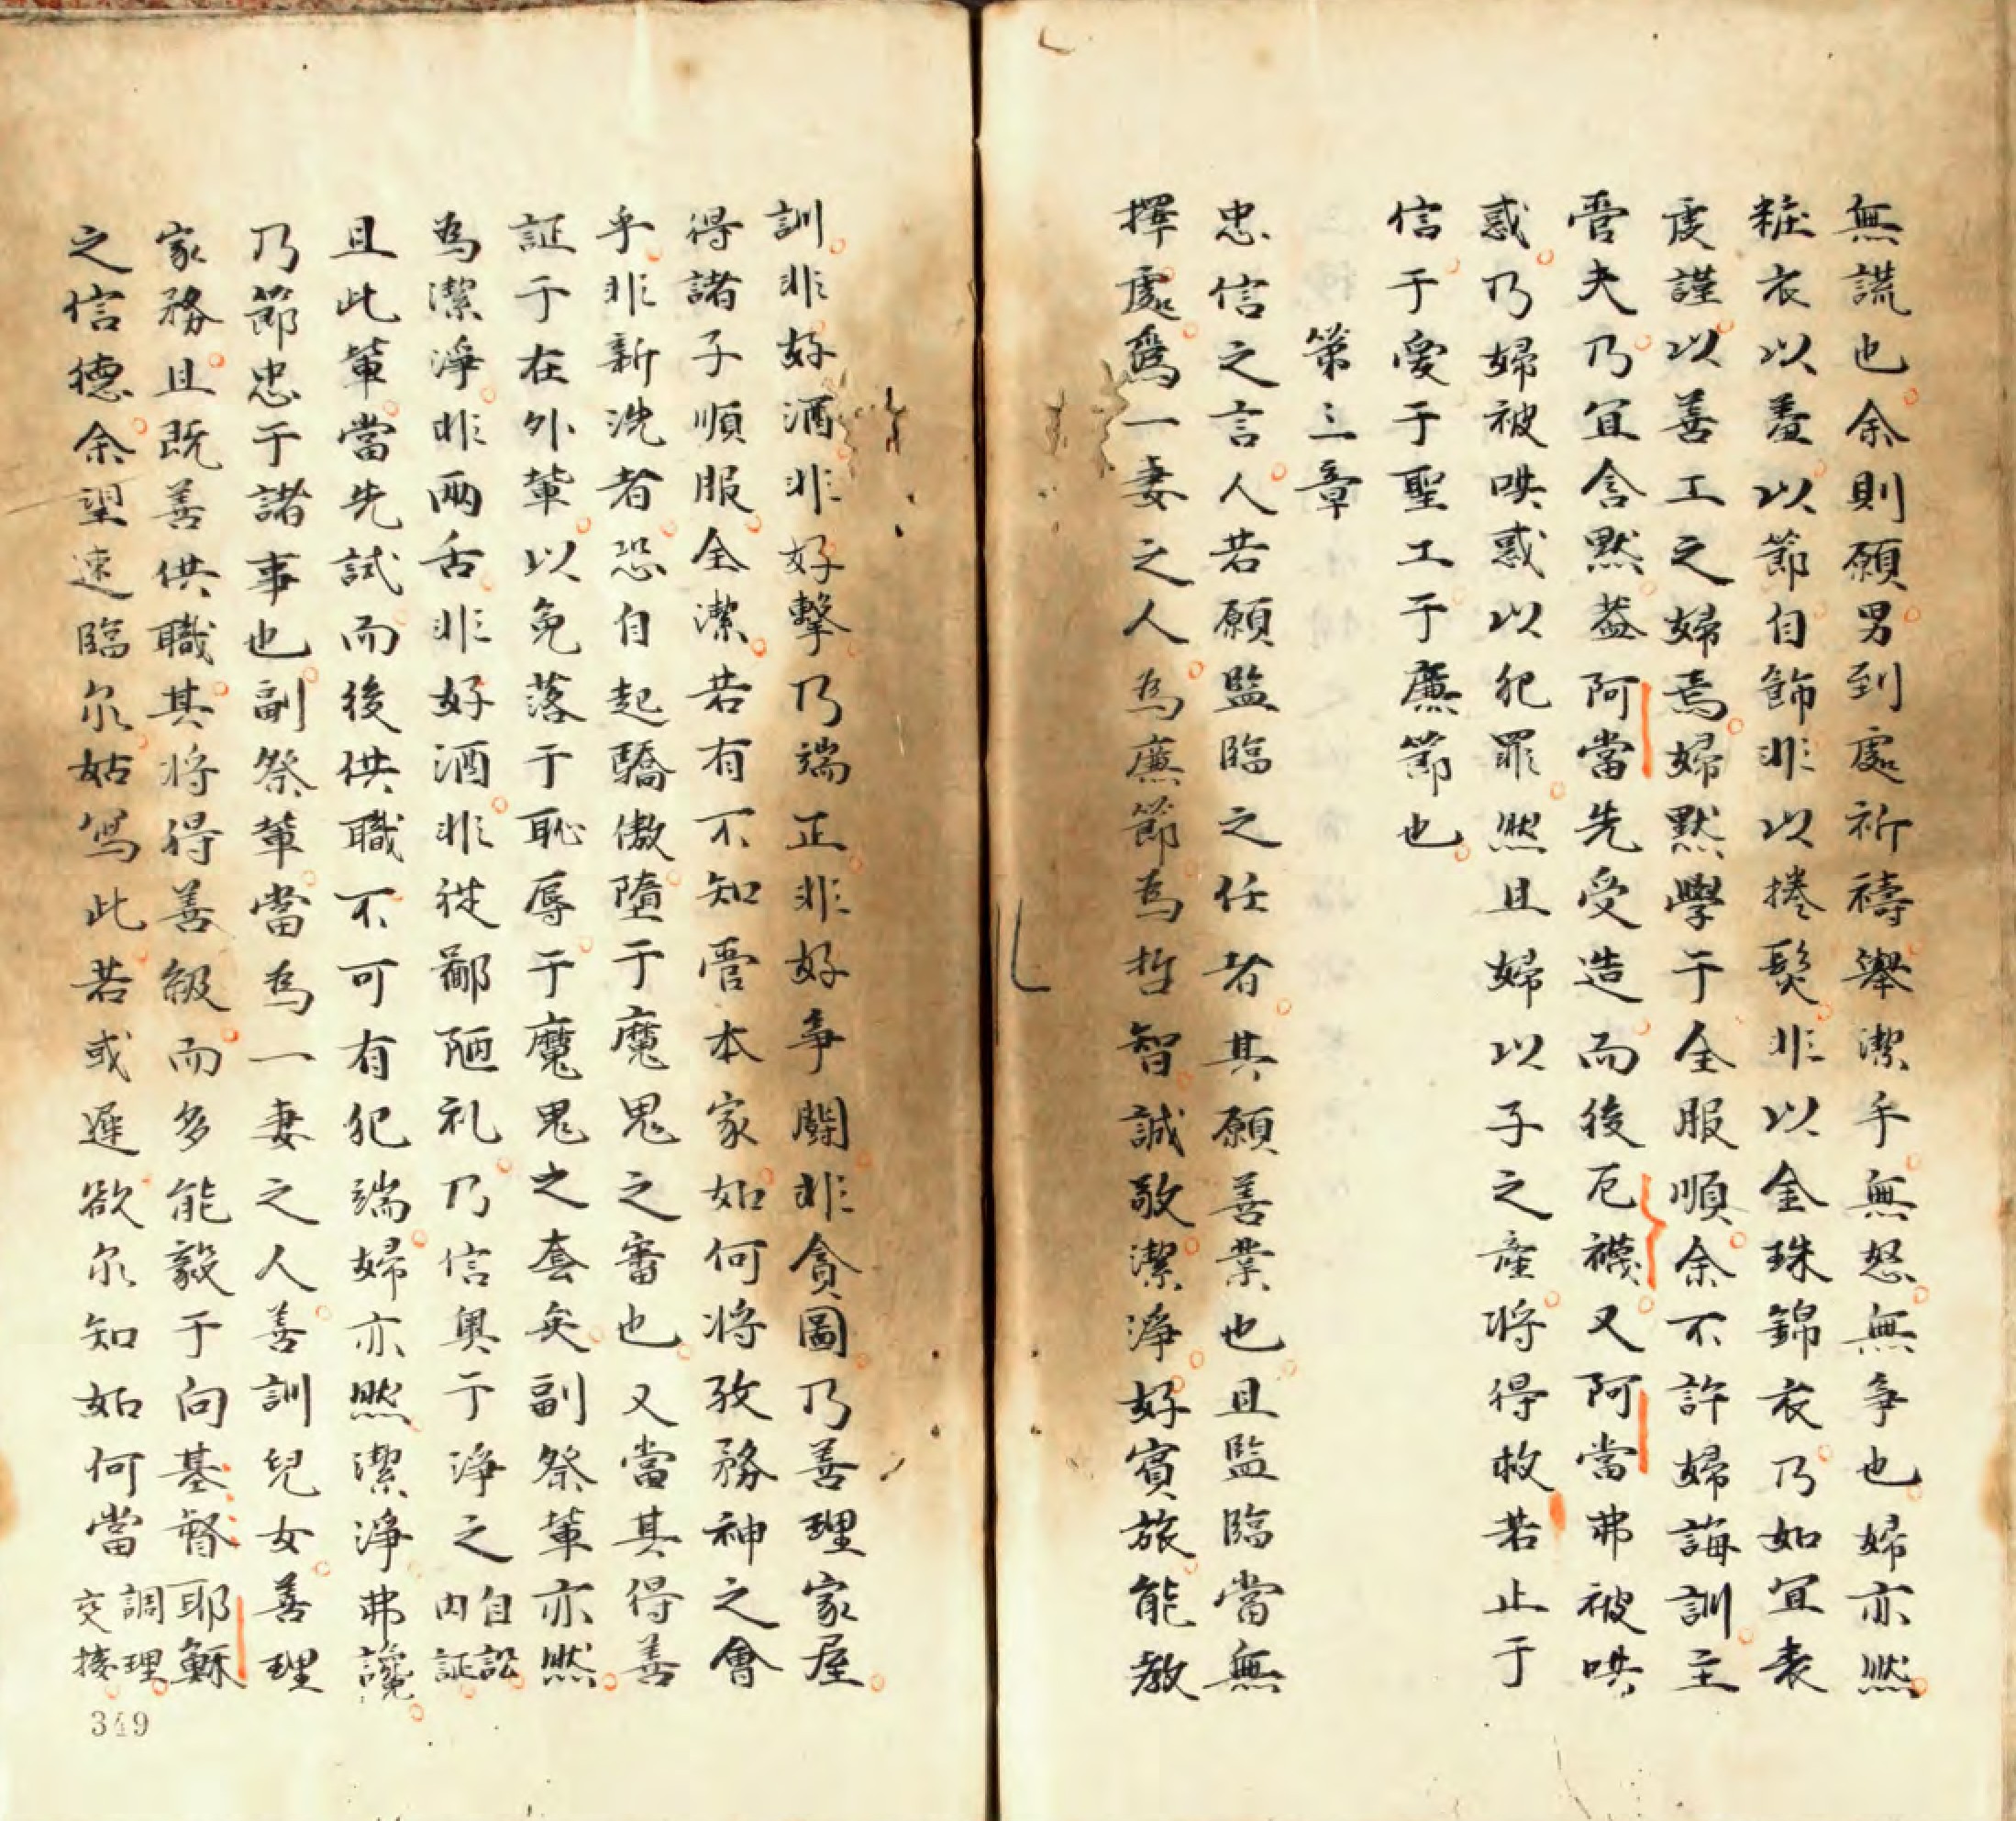 無謊也余則願男到處祈禱舉潔手無怒無争也婦亦然
粧衣以羞以節自飾非以捲髮非以金珠錦衣乃如宜表
虔謹以善工之婦焉婦默學于全服順余不許婦誨訓主
管夫乃宜含默蓋阿當先受造而後厄襪又阿當弗被哄
惑乃婦被哄惑以犯罪然且婦以子之產將得救若止于
信于愛于聖工于廉節也
第三章
忠信之言人若願監臨之任者其願善業也且監臨當無
擇處爲一妻之人為廉節為哲智誠敬潔淨好賓旅能教
訓非好酒非好擊乃端正非好争鬪非貪圖乃善理家屋
得諸子順服全潔若有不知管本家如何將孜務神之會
乎非新洗者恐自起驕傲墮于魔鬼之審也又當其得善
証于在外輩以免落于恥辱于魔鬼之套矣副祭輩亦然
為潔淨非兩舌非好酒非從鄙陋礼乃信奥于淨之自訟内証
且此輩當先試而後供職不可有犯端婦亦然潔淨弗讒
乃節忠于諸事也副祭輩當為一妻之人善訓兒女善理
家務且既善供職其將得善級而多能毅于向基督耶穌
之信德余望速臨尔姑寫此若或遲欲尔知如何當調理交接
349